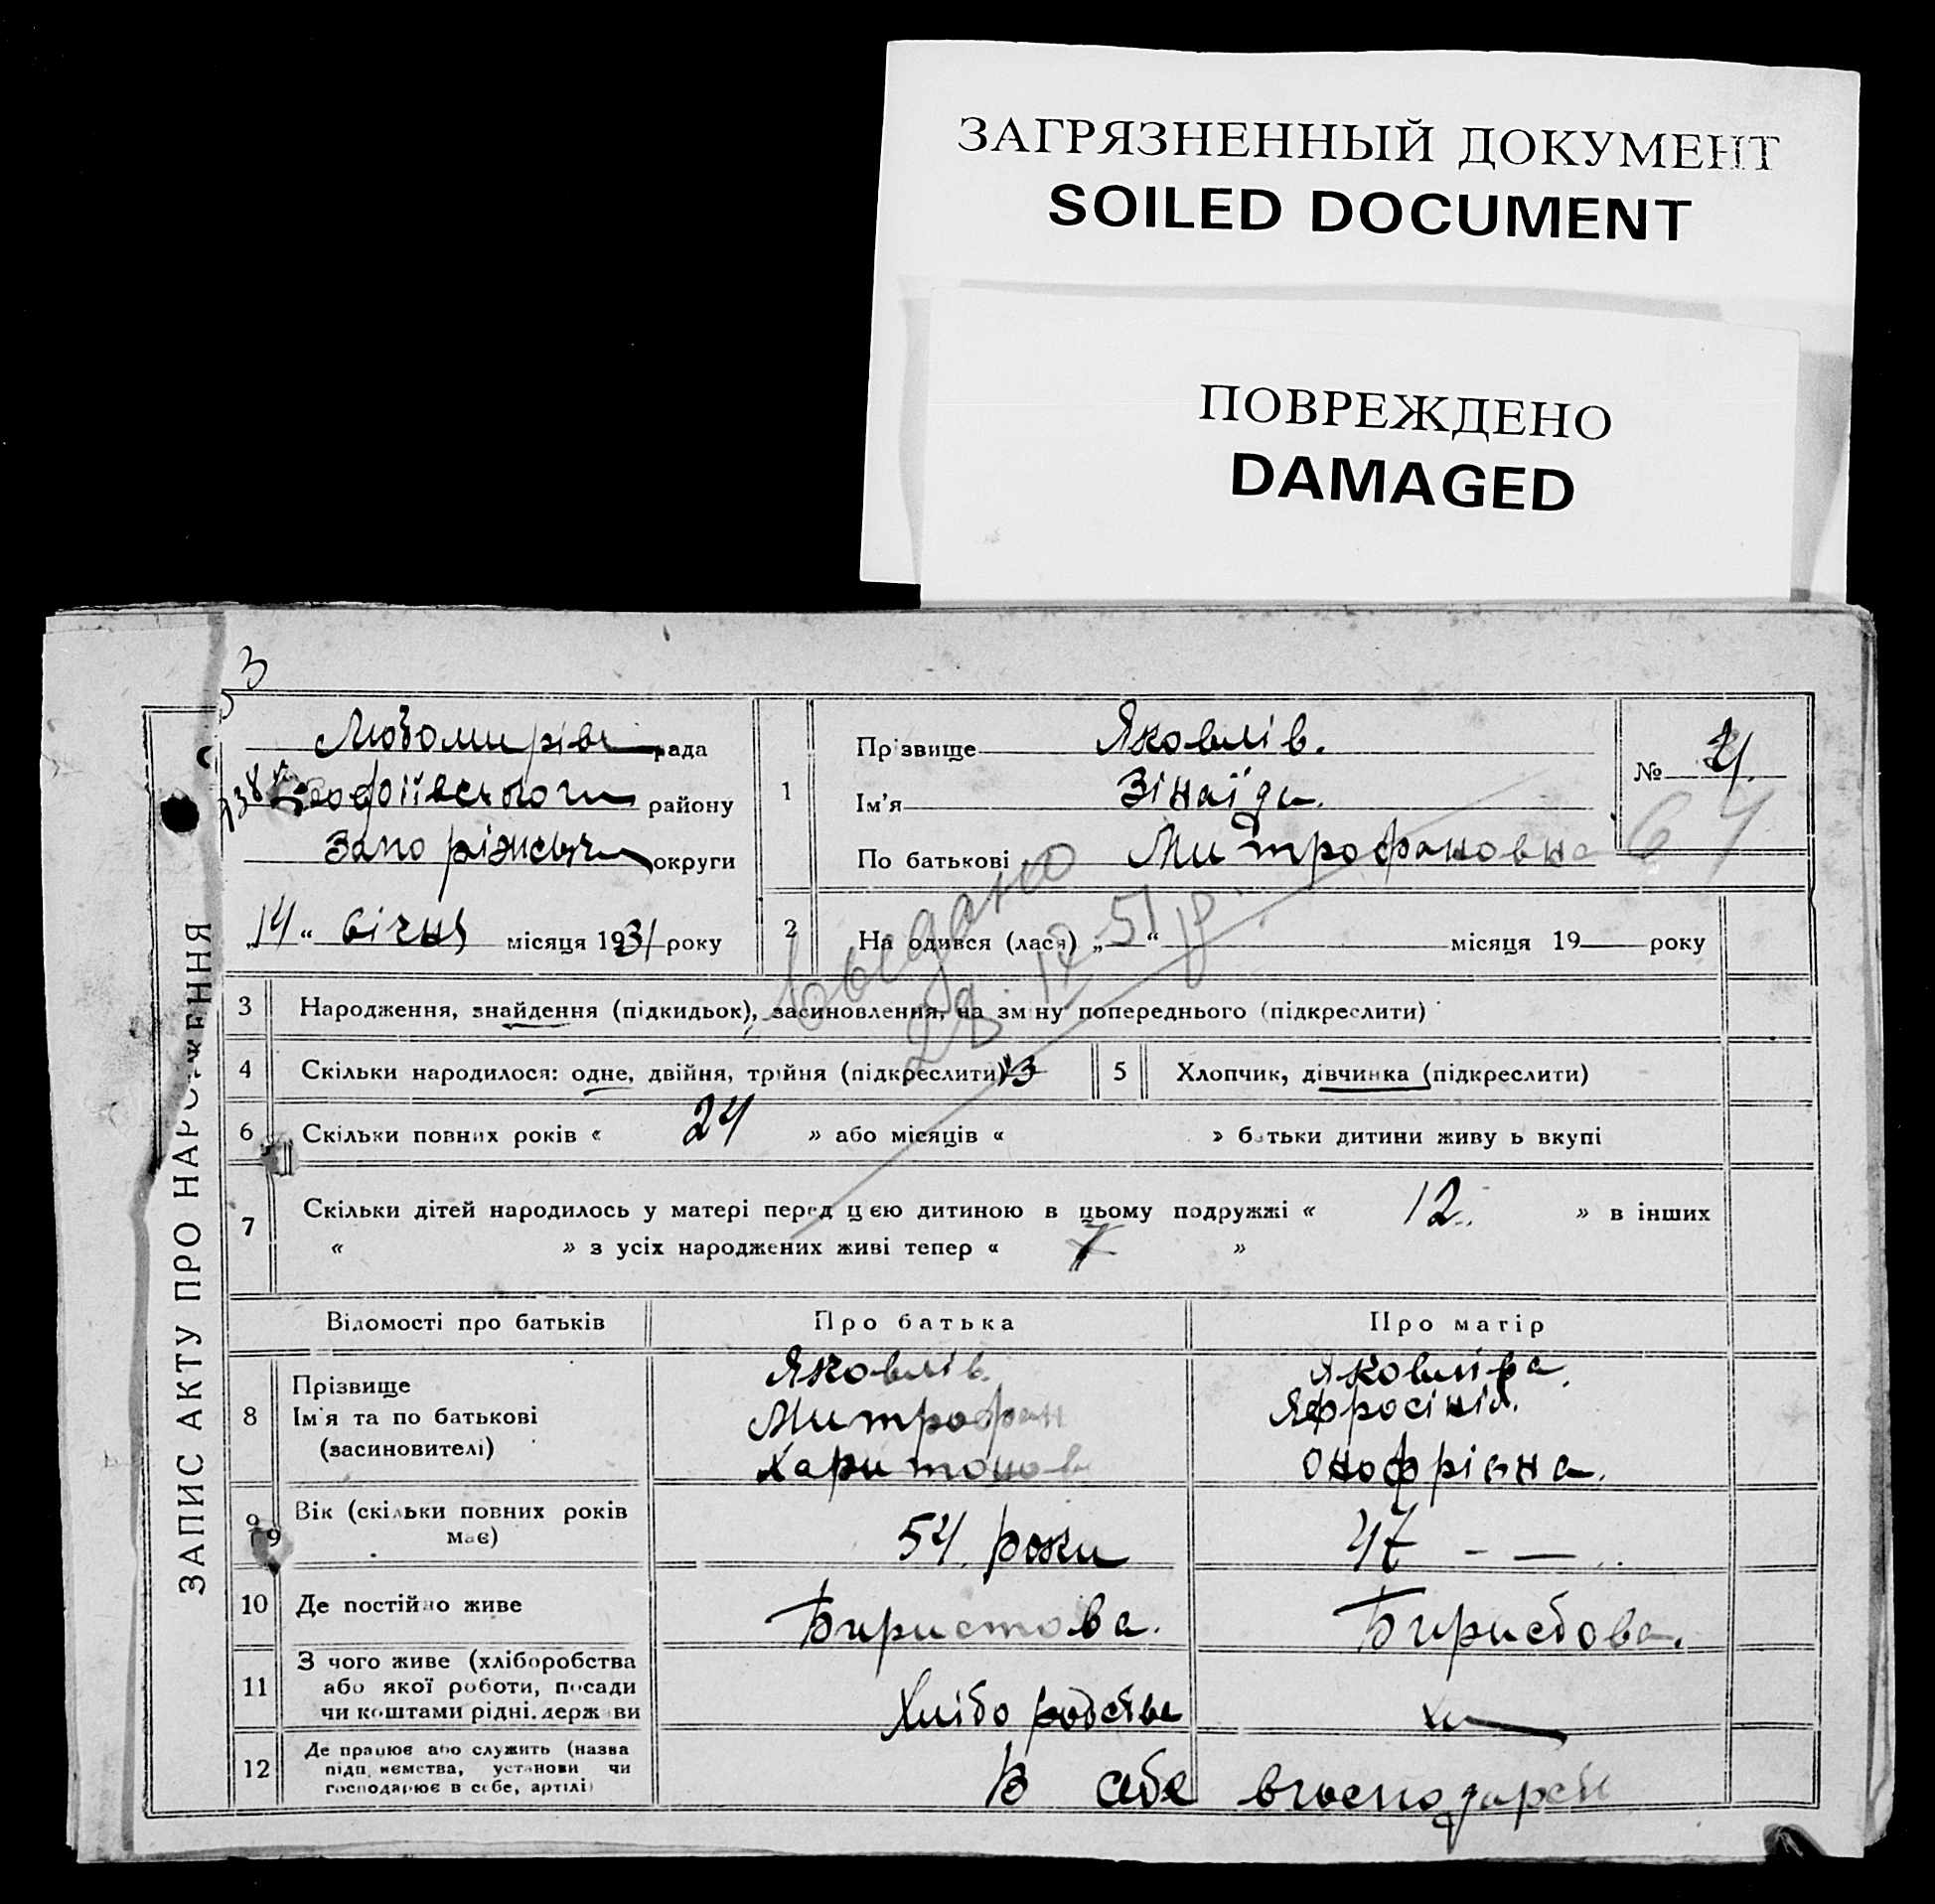 ЗАГРЯЗНЕННЫЙ ДОКУМЕНТ
SOILED DOCUMENT
ПОВРЕЖДЕНО
DAMAGED
3
ЗАПИС АКТУ ПРО НАРОДЖЕННЯ
Любомирівс рада
району
округи
„14“ січня місяця 1931 року
1
Прізвище Яковлів.
Ім'я Зінаїда.
По батькові Митрофановна
№ 4.
64
2
На одився (лася) „ “ місяця 19 року
выдано
28 17 51 р.
3 Народження, знайдення (підкидьок), засиновлення, на зміну попереднього (підкреслити)
4 Скільки народилося: одне, двійня, трійня (підкреслити) 5 Хлопчик, дівчинка (підкреслити)
6 Скільки повних років « 24 » або місяців « » батьки дитини живу ь вкупі
7 Скільки дітей народилось у матері перед цією дитиною в цьому подружжі « 12. » в інших
« » з усіх народжених живі тепер « 7 »
Відомості про батьків Про батька Про матір
8 Прізвище Яковлів. Яковліва.
Ім'я та по батькові Митрофан Яфросінія.
(засиновителі) Харитонов Онофріяна.
9 Вік (скільки повних років має) 54. роки 47 - —
10 Де постійно живе
11 З чого живе (хліборобства або якої роботи, посади чи коштами рідні, держави Хлібородства
12 Де працює або служить (назва підприємства, установи чи господарює в себе, артілі) В себе вгосподарсті